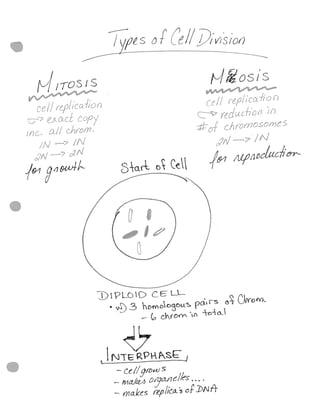 Types of Cell Division
MITOSIS
cell replication
↳ exact copy
inc. all chrom.
1N → 1N
2N → 2N
for growth
MEIOSIS
cell replication
↳ reduction in
# of chromosomes
2N → 1N
for reproduction
Start of Cell
DIPLOID CELL
• w) 3 homologous pairs of Chrom
- 6 chrom in total
INTERPHASE
- cell grows
- makes organelles....
- makes replica's of DNA